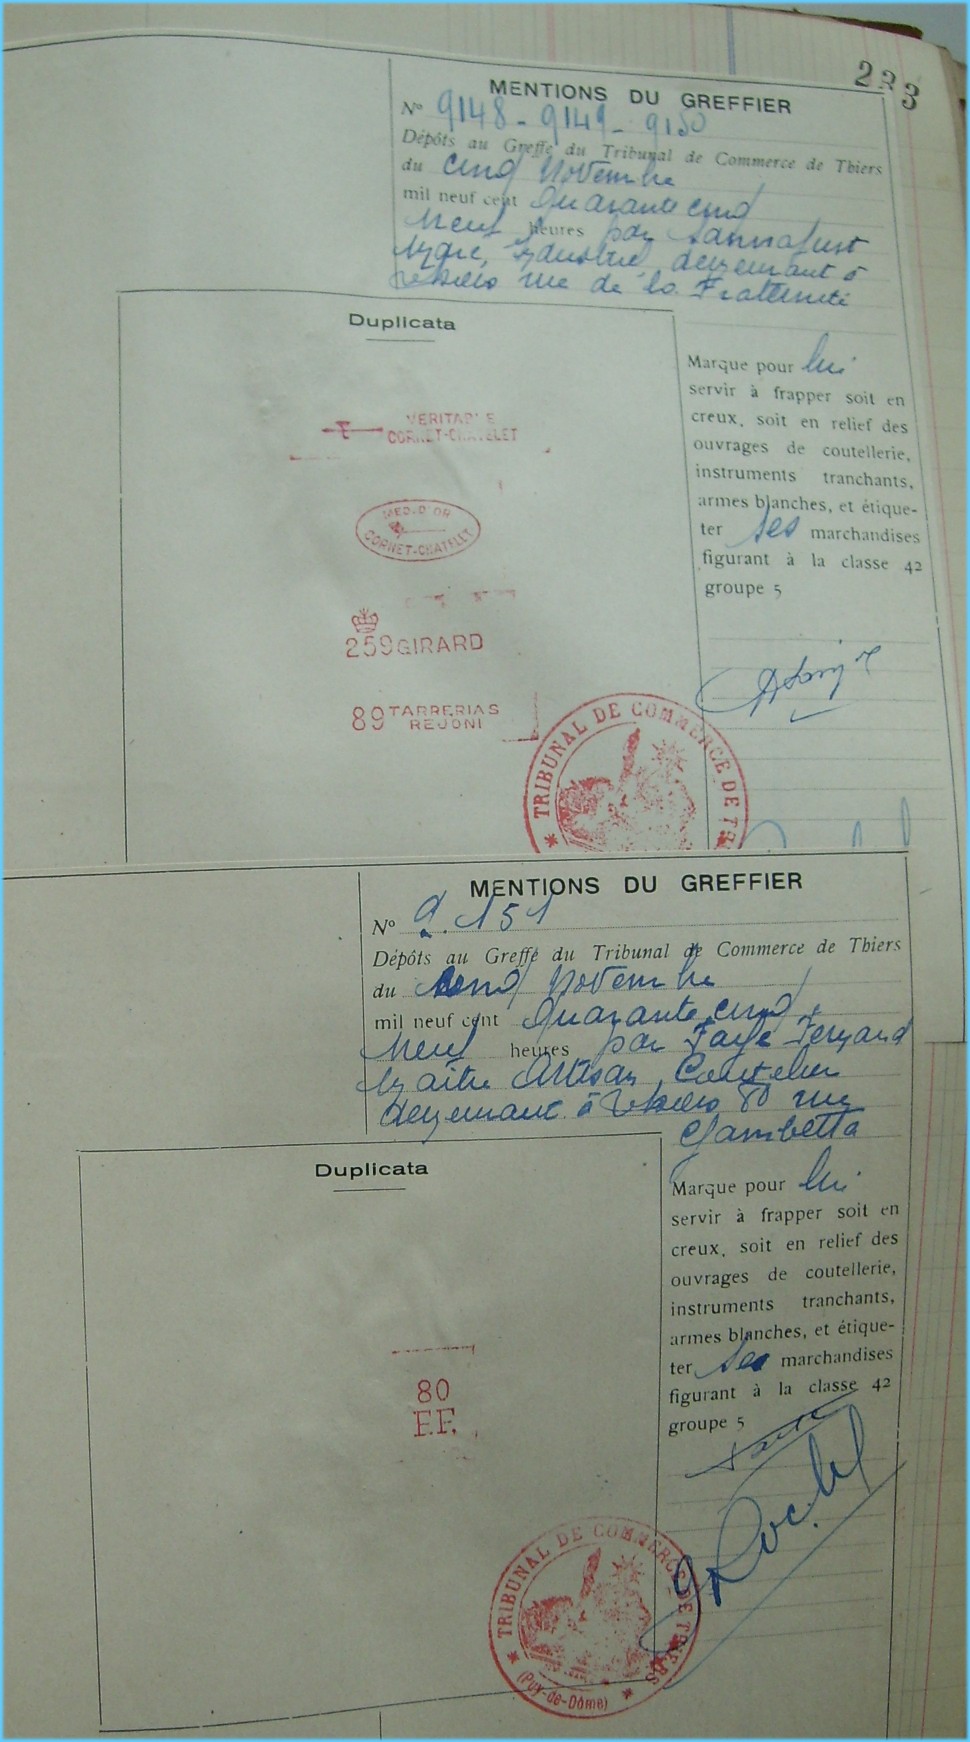 223
MENTIONS DU GREFFIER
N° 9148 - 9149 - 9150
Dépôts au Greffe du Tribunal de Commerce de Thiers
du cinq Novembre
mil neuf cent quarante cinq
Neuf heures par
demeurant à
Thiers rue de la Fraternité
Duplicata
VERITABLE
CORNET-CHATELET
MED. D'OR
CORNET-CHATELET
259 GIRARD
89 TARRERIAS
REJONI
TRIBUNAL DE COMMERCE DE
Marque pour lui
servir à frapper soit en
creux, soit en relief des
ouvrages de coutellerie,
instruments tranchants,
armes blanches, et étique-
ter ses marchandises
figurant à la classe 42
groupe 5
MENTIONS DU GREFFIER
N° 9.151
Dépôts au Greffe du Tribunal de Commerce de Thiers
du cinq Novembre
mil neuf cent quarante cinq
Neuf heures par Faye Fernand
Maître Artisan Coutelier
demeurant à Thiers 80 rue
Gambetta
Duplicata
80
F.F.
TRIBUNAL DE COMMERCE DE THIERS
(Puy-de-Dôme)
Marque pour lui
servir à frapper soit en
creux, soit en relief des
ouvrages de coutellerie,
instruments tranchants,
armes blanches, et étique-
ter ses marchandises
figurant à la classe 42
groupe 5